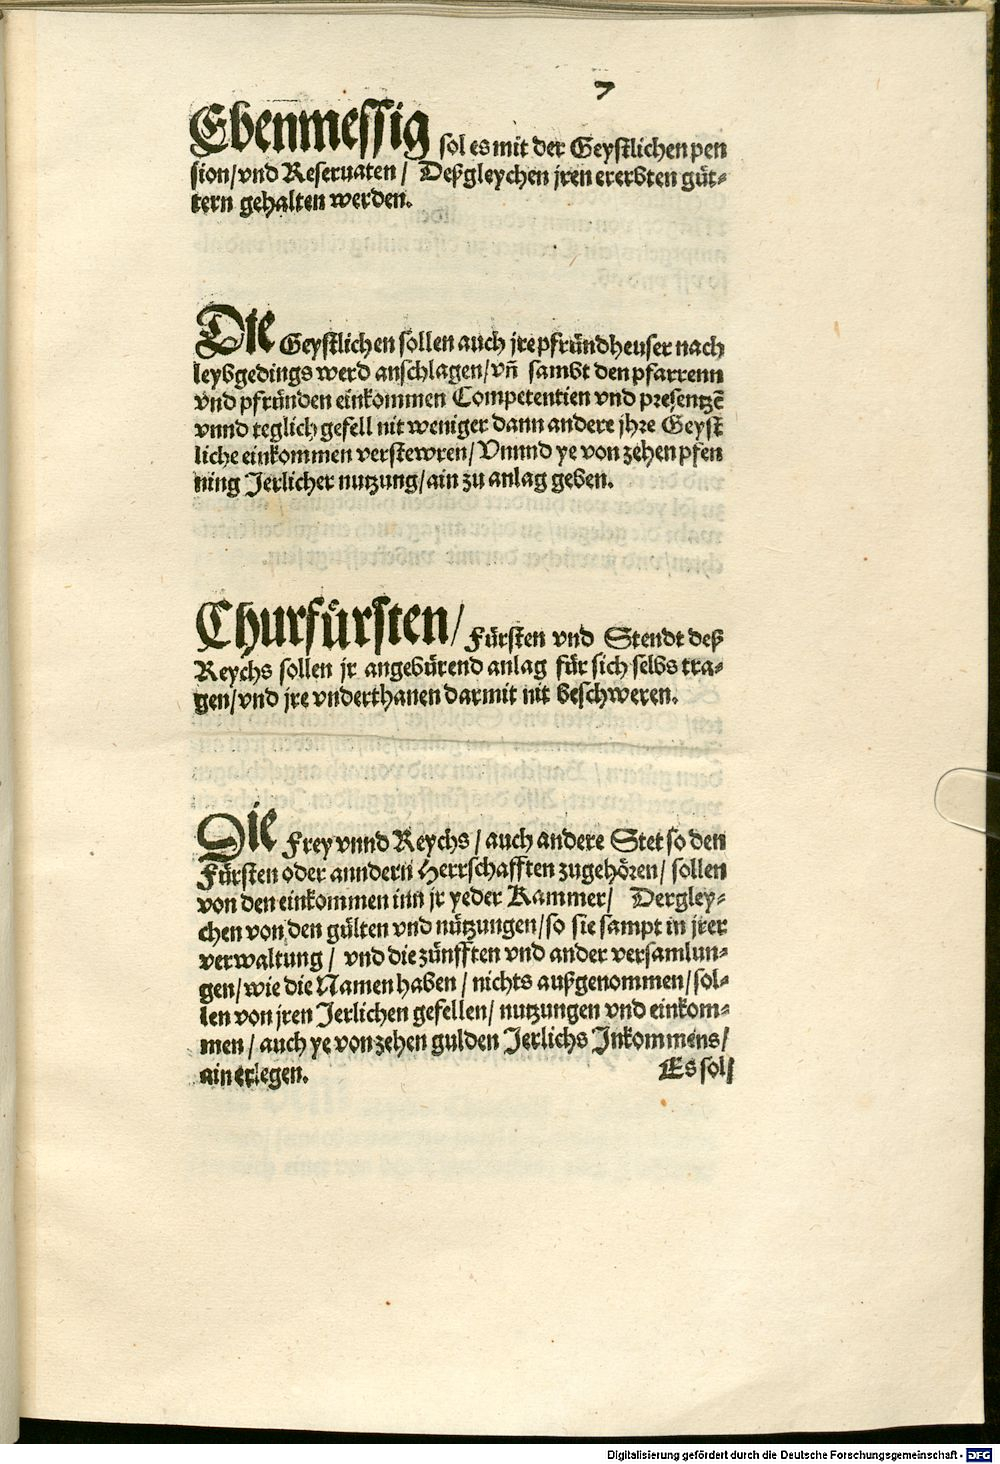 7
Ebenmessig sol es mit der Geystlichen pen
sion/vnd Reseruaten / Deßgleychen jren ererbten güt-
tern gehalten werden.
Die Geystlichen sollen auch jre pfründheuser nach
leybgedings werd anschlagen/vñ sambt den pfarrenn
vnd pfründen einkommen Competentien vnd presentzē
vnnd teglich gefell nit weniger dann andere jhre Geyst
liche einkommen verstewren/ Vnnd ye von zehen pfen
ning Jerlicher nutzung/ain zu anlag geben.
Churfürsten/ Fürsten vnd Stendt deß
Reychs sollen jr angebürend anlag für sich selbs tra-
gen/vnd jre vnderthanen darmit nit beschweren.
Die Frey vnnd Reychs / auch andere Stet so den
Fürsten oder anndern Herrschafften zugehören/ sollen
von den einkommen inn jr yeder Kammer/ Dergley-
chen von den gülten vnd nützungen/so sie sampt in jrer
verwaltung / vnd die zünfften vnd ander versamlun-
gen/wie die Namen haben / nichts außgenommen/sol-
len von jren Jerlichen gefellen/ nutzungen vnd einkom-
men / auch ye von zehen gulden Jerlichs Jnkommens/
ain erlegen. Es sol/
Digitalisierung gefördert durch die Deutsche Forschungsgemeinschaft - DFG